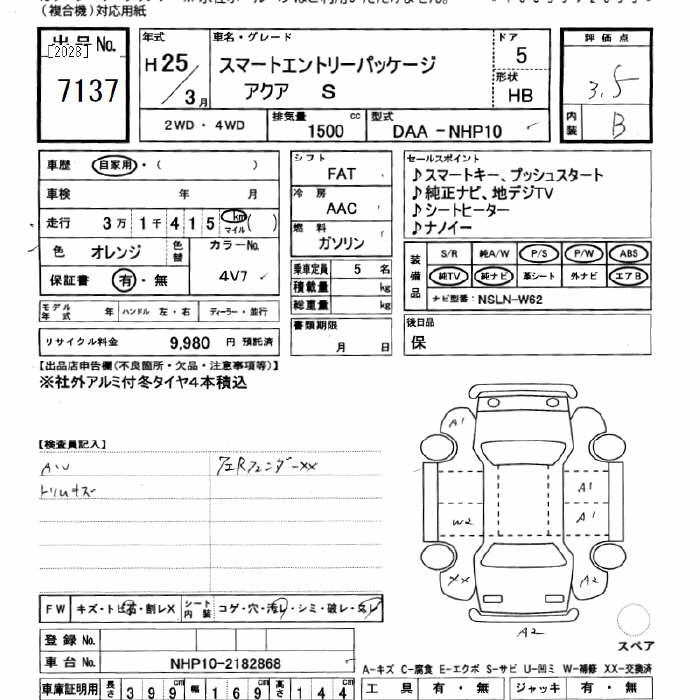 (複合機)対応用紙
出品No.
[2028]
7137
年式
H25/3月
車名・グレード
スマートエントリーパッケージ
アクア S
ドア
5
形状
HB
評価点
3.5
内装
B
2WD・4WD
排気量 cc
1500
型式
DAA -NHP10
車歴 自家用・( )
車検 年 月
走行 3万 1千 4 1 5 km マイル ( )
色 オレンジ 色替
カラーNo.
4V7
保証書 有・無
モデル年式 年 ハンドル 左・右 ディーラー・並行
リサイクル料金 9,980 円 預託済
シフト
FAT
冷房
AAC
燃料
ガソリン
乗車定員 5 名
積載量 kg
総重量 kg
書類期限
月 日
セールスポイント
♪スマートキー、プッシュスタート
♪純正ナビ、地デジTV
♪シートヒーター
♪ナノイー
装備品
S/R 純A/W P/S P/W ABS
純TV 純ナビ 革シート 外ナビ エアB
ナビ型番: NSLN-W62
後日品
保
【出品店申告欄(不良箇所・欠品・注意事項等)】
※社外アルミ付冬タイヤ4本積込
【検査員記入】
AW
トリムキズ
左Rフェンダーxx
A1
A1
A1
W2
XX
A2
A2
スペア
FW キズ・トビ石・割レX シート内装 コゲ・穴・汚レ・シミ・破レ・欠レ
登録No.
車台No. NHP10-2182868
A-キズ C-腐食 E-エクボ S-サビ U-凹ミ W-補修 XX-交換済
車庫証明用 長さ 399cm 幅 169cm 高さ 144cm
工具 有・無 ジャッキ 有・無